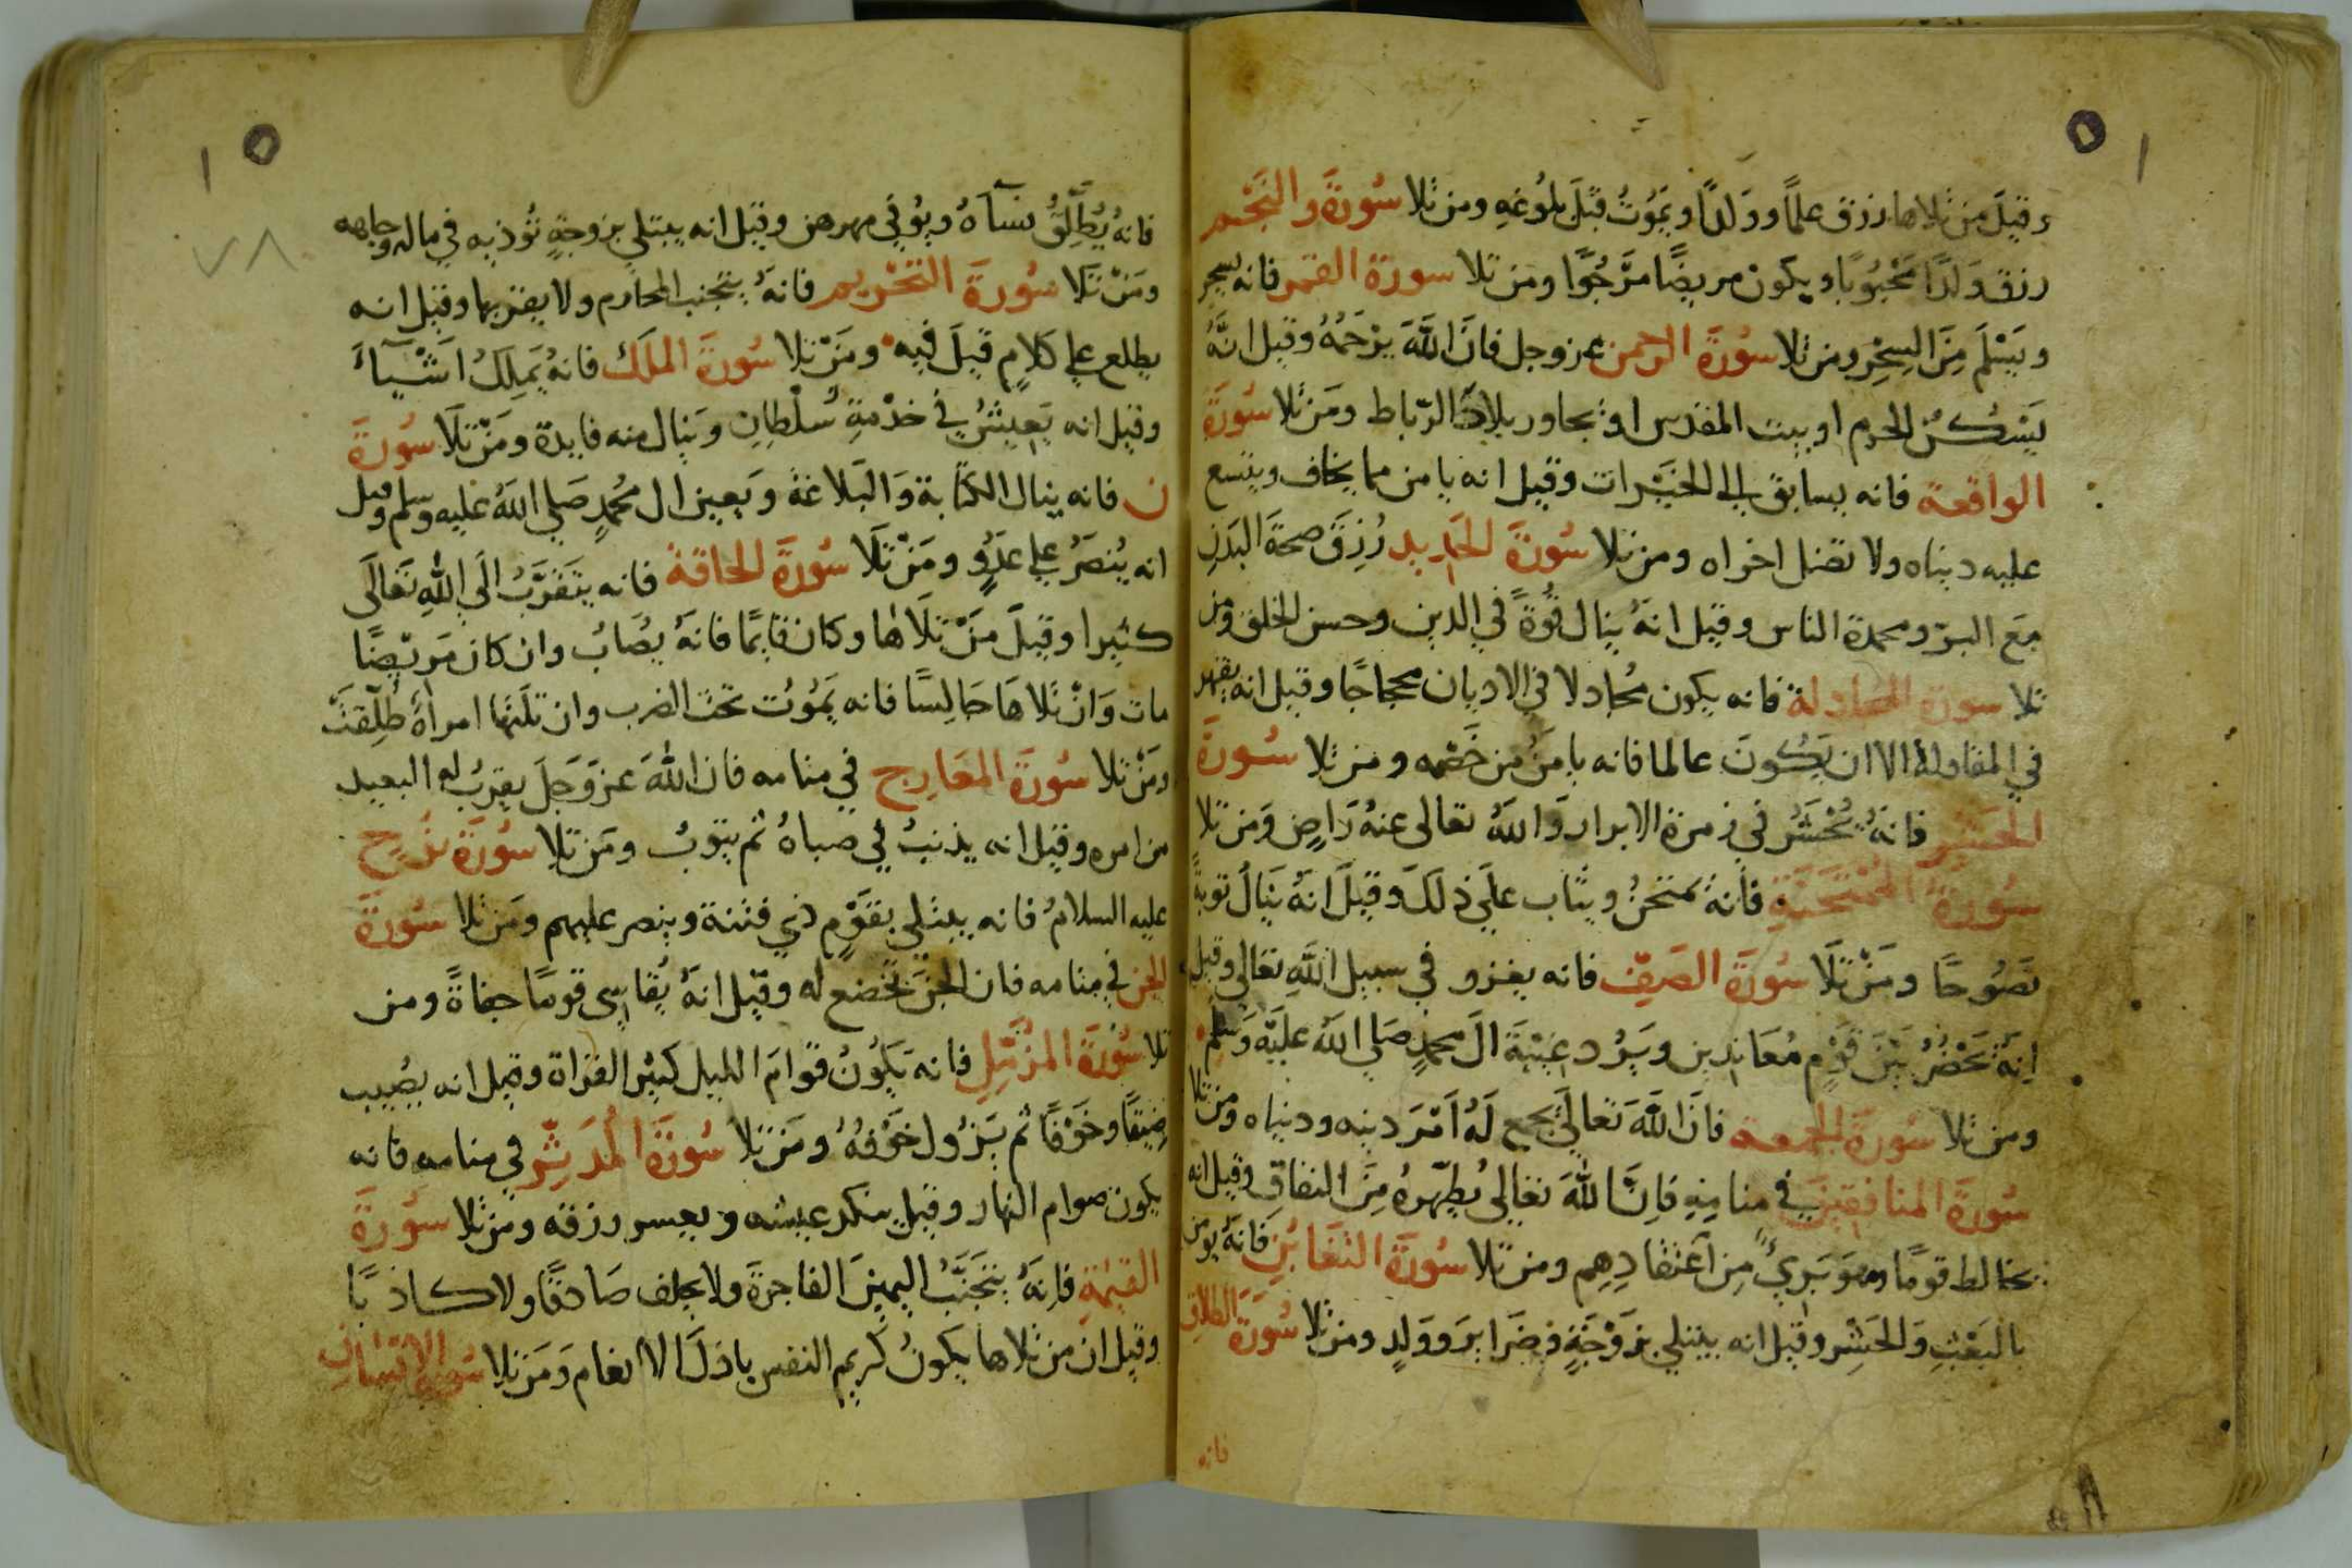 وقيلَ من تلاها رزق علمًا وولدًا ويَمُوتُ قبلَ بلوُغهِ ومن تلا سُورَة والنَجْم
رزق وَلدًا مَحْبوُبًا ويكون مريضًا مَرْجُوًا ومن تلا سورة القمر فانه يسحر
ويَسْلَم مِنَ السِحْرِ ومن تلا سُورَة الرحمن عز وجل فانَ اللهَ يرْحَمُهُ وقيل انَّهُ
يَسْكنُ الحرم او بيت المقدس او يجاور بلاد الرّباط ومَن تلا سُورَة
الواقعة فانه يسابق الى الخيَرات وقيل انه يامن مما يخاف ويتسع
عليه دنياه ولا تضل اخراه ومن تلا سُورَة الحَدِيد رُزِقَ صحةَ البَدَنِ
مَع البرّ ومحمدة الناس وقيل انهُ ينال قُوةً في الدين وحسن الخلق ومن
تلا سورة المجادلة فانه يكون مُجادلا في الاديان محجاجًا وقيل انه يقهر
في المقاولة الا ان يَكُونَ عالما فانه يامَنُ من خَصْمه ومن تلا سُورَة
الحَشرِ فانهُ يُحْشَرُ في زمرة الابرار وَاللهُ تعالى عنهُ رَاضٍ وَمَن تلا
سُورَةُ المُمْتَحَنَةِ فانهُ يمتحنُ ويثاب على ذلكَ وقيلَ انهُ يَنَالُ توبةً
نَصُوحًا ومَنْ تَلَا سُورَةَ الصَفّ فانه يغزو في سبيل اللهِ تعالى وقيل
انهُ يَحْضُرُ بَيْنَ قَوْمٍ مُعَاندِين ويَرُد غيْبَةَ الَ محمدٍ صَلى اللهُ علَيْه وَسَلم
ومن تلا سُورَة الجمعة فانَ اللهَ تعالَى يجمع لَهُ اَمْرَ دينه ودنياه ومن تلا
سُورَة المنافقِينَ في منامِهِ فانَ اللهَ تعَالى يُطهّرهُ مِنَ النفاقِ وقيل انه
يخالط قومًا وهوَ بَريٌ مِن اَعْتقادِهِم ومن تلا سُورَة التغَابُنِ فانهُ يومن
بالبَعْثِ وَالحَشِر وقيل انه يبتلي بزَوْجَةٍ وضَرَاير وولدٍ ومن تلا سُورَة الطلاق
فانه
فانهُ يُطَلِّقُ نسَآهُ ويُوُفي مهرهن وقيل انه يبتلي بزوجةٍ تُؤذيه في ماله وجاهه
ومَنْ تَلَا سُورَةَ التَحْرِيم فانهُ يتجنب المحارم ولا يقربها وقيل انه
يطلع على كلامٍ قيلَ فيهِ ومَنْ تلا سُورَةَ الملك فانهُ يَملِكُ اَشْيآءَ
وقيل انه يَعِيشُ في خدْمةِ سُلْطانٍ وَينال منه فايدة ومَنْ تَلَا سُورَةَ
ن فانه ينال الكتَابة وَالبَلاغة وَيعين ال مُحمدٍ صَلى اللهُ عليه وسلم وقيل
انه يُنصَرُ على عَدُوٍ ومَنْ تَلَا سُورَةَ الحاقة فانه يتَقرَّبُ الَى اللهِ تعَالَى
كثيرا وقيلَ مَنْ تلَاها وكان قايمًا فانهُ يصَابُ وان كان مَريْضًا
مات وَانْ تَلا هَا جَالِسًا فانه يَمُوُت تحْت الضرب وان تلَتها امرأةٌ طُلِّقَتْ
ومَنْ تلا سُورَةَ المعَارِج في منامه فان اللهَ عز وَجَل يقربُ له البعيد
من امره وقيل انه يذنبُ في صباهُ ثم يتوبُ ومَن تلا سُورَة نُوحٍ
عليه السلامُ فانه يبتلي بقوْمٍ ذي فتنة وينصر عليهم ومَن تلا سُورَة
الجن في منامه فان الجنَ تخْضع له وقيل انهُ يُقاسِى قومًا جفاةً ومن
تلا سُورَةَ المزّمّلِ فانه يَكوُنُ قوامَ الليل كثير القراة وقيل انه يصُيب
ضِيقًا وخَوْفًا ثم يَزُول خَوْفهُ ومَن تلا سُورَةَ المُدَّثِّر في منامهِ فانه
يكون صوام النهار وقيل يتنكد عيشه ويعسر رزقه ومن تلا سُورَةَ
القيمَةِ فانهُ يتجَنَبُ اليمينَ الفاجرَةَ ولا يحلف صَادقًا ولا كاذبًا
وقيل ان من تلاها يكونُ كريم النفس باذلَ الانعام وَمَن تلا سُورَة الانسَانِ